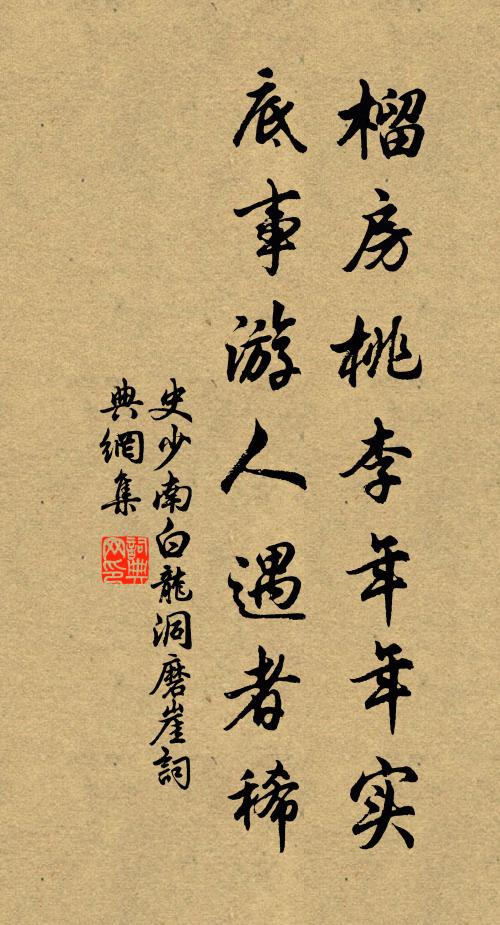 榴房桃李年年实
底事游人遇者稀
史少南白龍洞磨崖詞
典網集
詞典网印